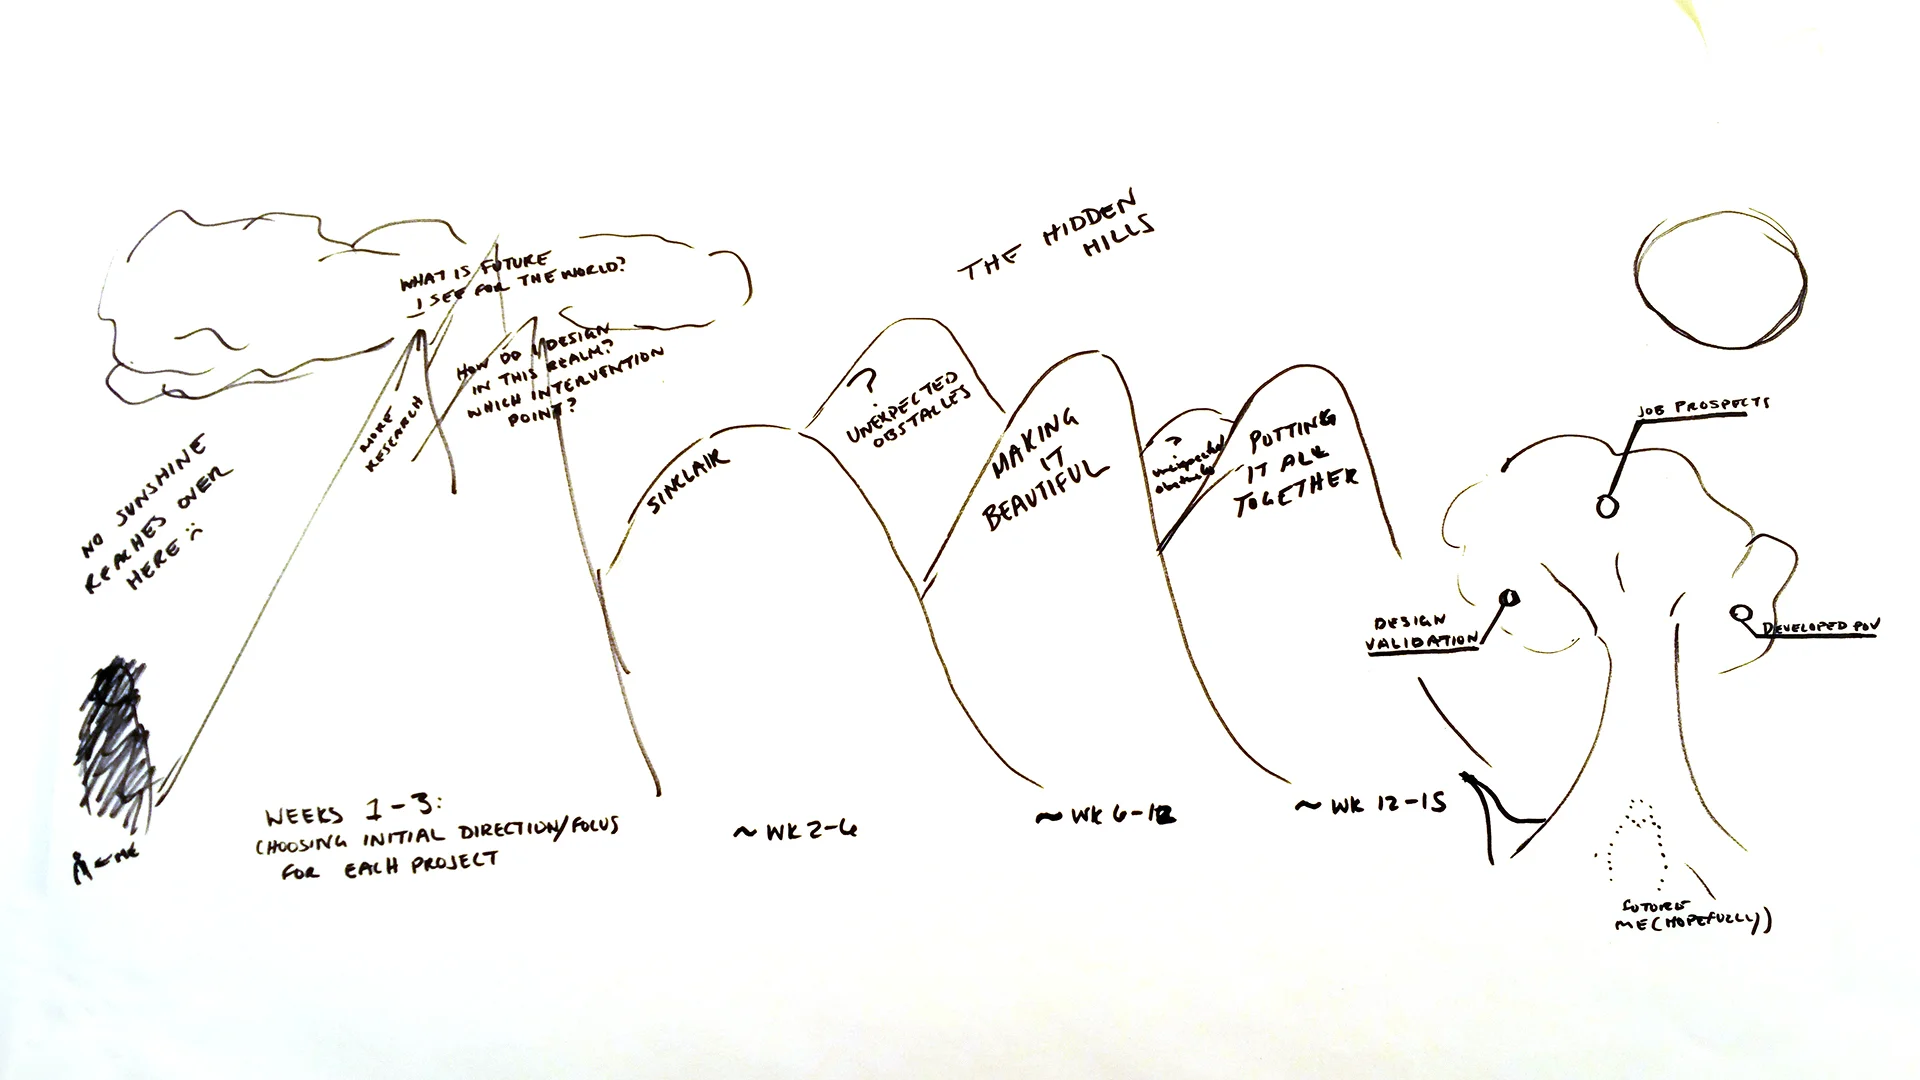 THE HIDDEN
HILLS
WHAT IS FUTURE
I SEE FOR THE WORLD?
HOW DO I DESIGN
IN THIS REALM?
WHICH INTERVENTION
POINT?
MORE
RESEARCH
NO SUNSHINE
REACHES OVER
HERE :(
SINCLAIR
?
UNEXPECTED
OBSTACLES
MAKING
IT
BEAUTIFUL
?
unexpected
obstacles
PUTTING
IT ALL
TOGETHER
JOB PROSPECTS
DESIGN
VALIDATION
DEVELOPED POV
← ME
WEEKS 1-3:
CHOOSING INITIAL DIRECTION/FOCUS
FOR EACH PROJECT
~ WK 2-6
~ WK 6-12
~ WK 12-15
FUTURE
ME (HOPEFULLY)